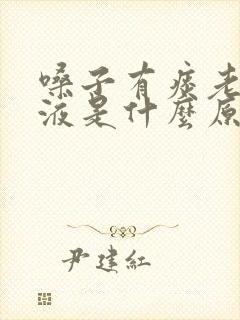 嗓子有痰老
液是什麼原
尹建紅